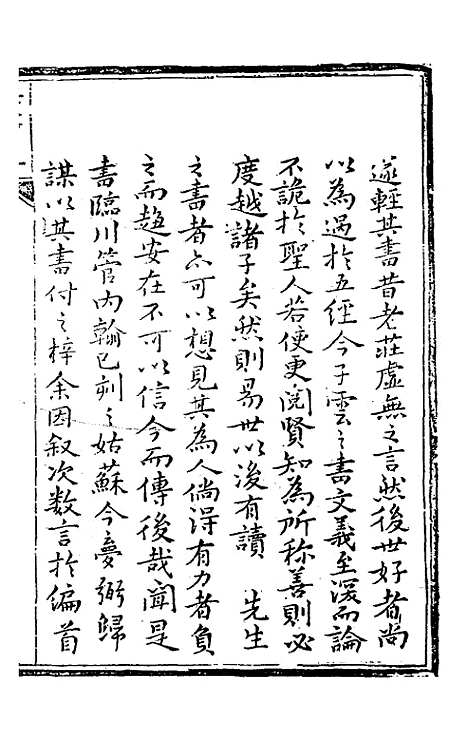 遂輕其書昔老莊虛無之言然後世好者尚
以為過於五經今子雲之書文義至深而論
不詭於聖人若使更閱賢知為所稱善則必
度越諸子矣然則易世以後有讀　先生
之書者亦可以想見其為人倘得有力者負
之而趨安在不可以信今而傳後哉聞是
書臨川管內翰已刻之姑蘇今夢弼歸
謀以其書付之梓余因叙次数言於編首